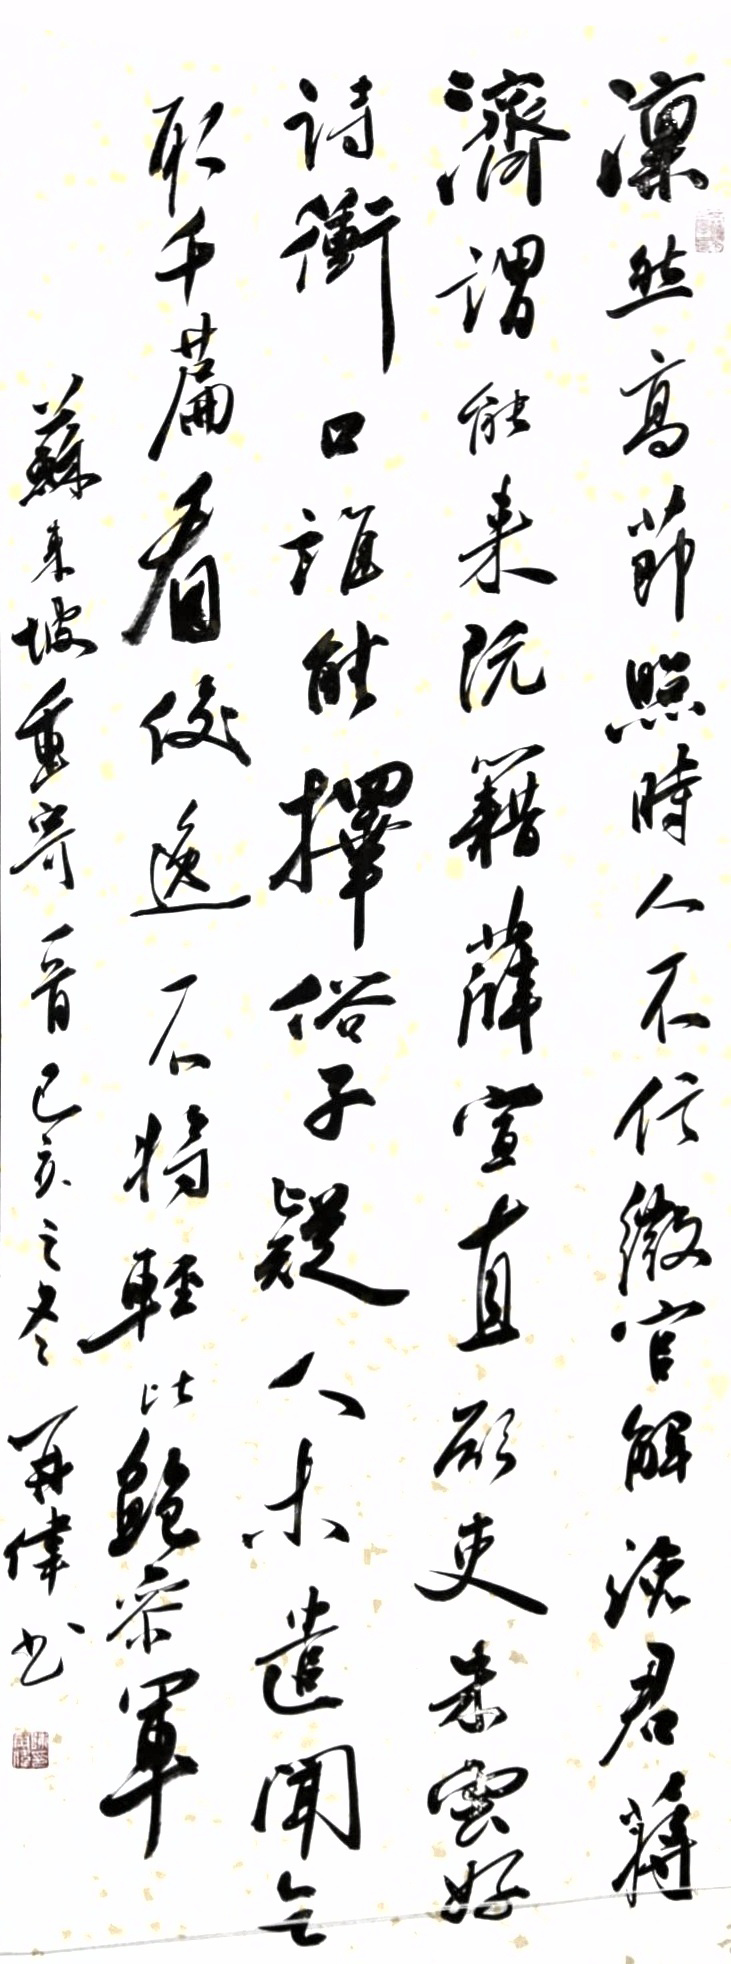 凜然高節照時人不信微官解浼君蔣
濟謂能来阮籍薛宣直欲吏朱雲好
詩衝口誰能擇俗子疑人未遣聞乞
取千篇看俊逸不將輕比鮑參軍
蘇東坡重寄一首己亥之冬再偉书